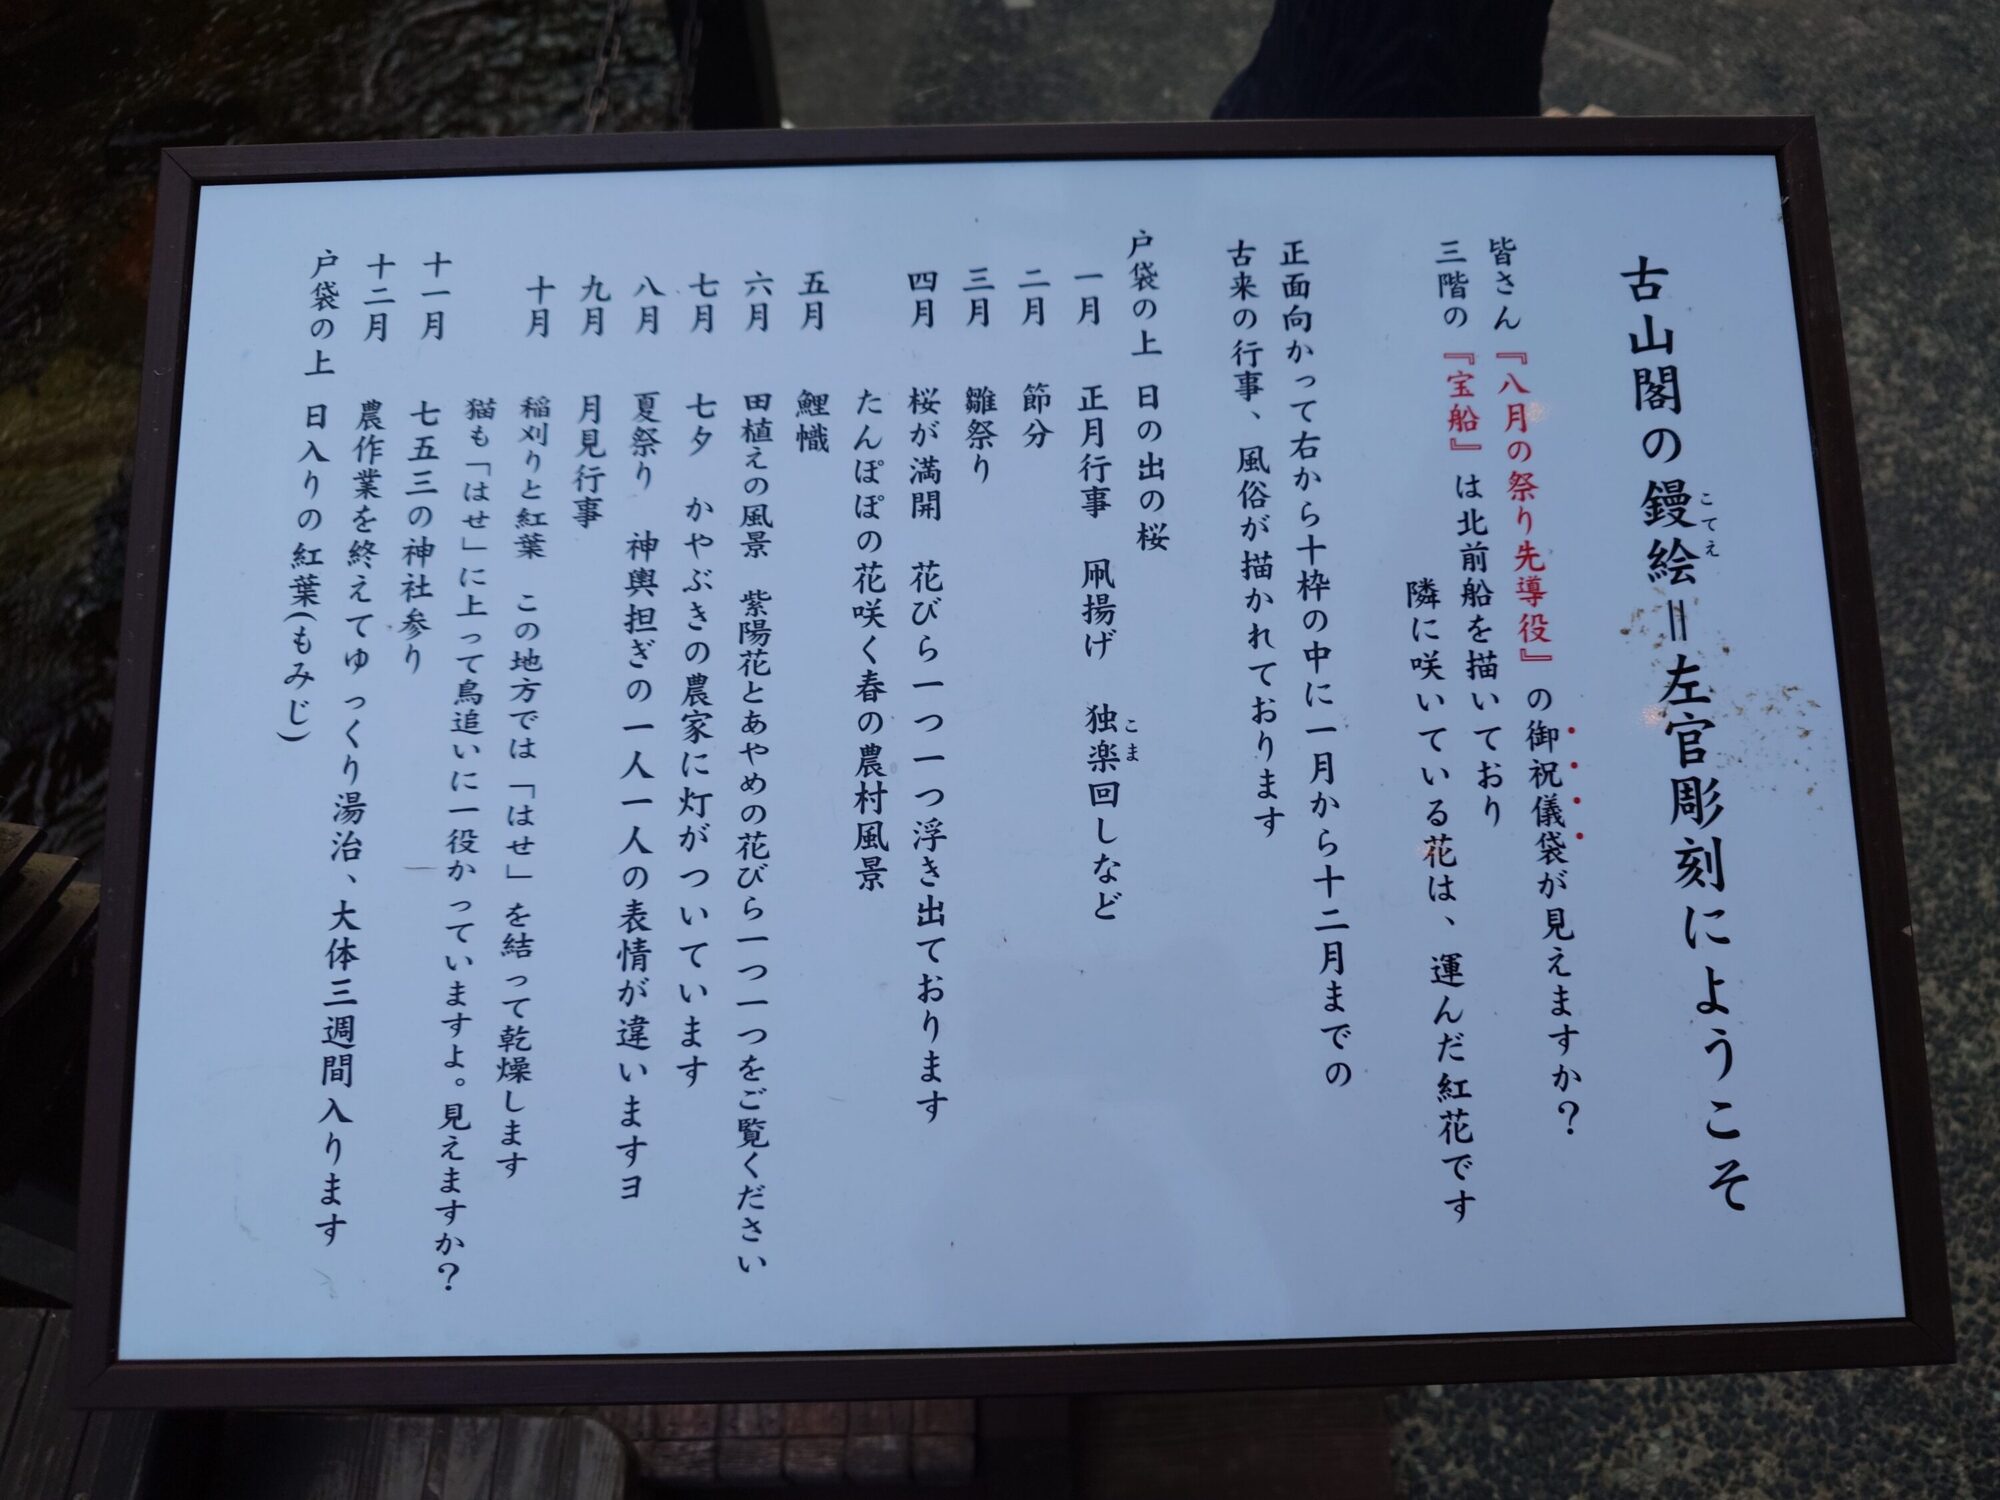 古山閣の鏝絵＝左官彫刻にようこそ
こてえ
皆さん『八月の祭り先導役』の御祝儀袋が見えますか？
三階の『宝船』は北前船を描いており
隣に咲いている花は、運んだ紅花です
正面向かって右から十枠の中に一月から十二月までの
古来の行事、風俗が描かれております
戸袋の上　日の出の桜
一月　正月行事　凧揚げ　独楽回しなど
こま
二月　節分
三月　雛祭り
四月　桜が満開　花びら一つ一つ浮き出ております
たんぽぽの花咲く春の農村風景
五月　鯉幟
六月　田植えの風景　紫陽花とあやめの花びら一つ一つをご覧ください
七月　七夕　かやぶきの農家に灯がついています
八月　夏祭り　神輿担ぎの一人一人の表情が違いますヨ
九月　月見行事
十月　稲刈りと紅葉　この地方では「はせ」を結って乾燥します
猫も「はせ」に上って鳥追いに一役かっていますよ。見えますか？
十一月　七五三の神社参り
十二月　農作業を終えてゆっくり湯治、大体三週間入ります
戸袋の上　日入りの紅葉(もみじ)